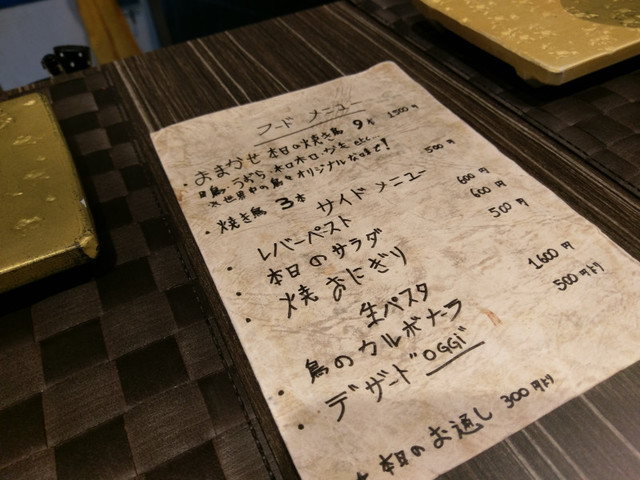 フード メニュー
・おまかせ 本日の焼き鳥 9本 1500円
鳥、うずら、ホロホロ、ガモ etc...
※世界中の鳥をオリジナルな味で!
・焼き鳥 3本 500円
サイドメニュー
・レバーペースト 600円
・本日のサラダ 600円
・焼おにぎり 500円
生パスタ
・鳥のカルボナーラ 1600円
・デザート "OGGi" 500円より
本日のお通し 300円より